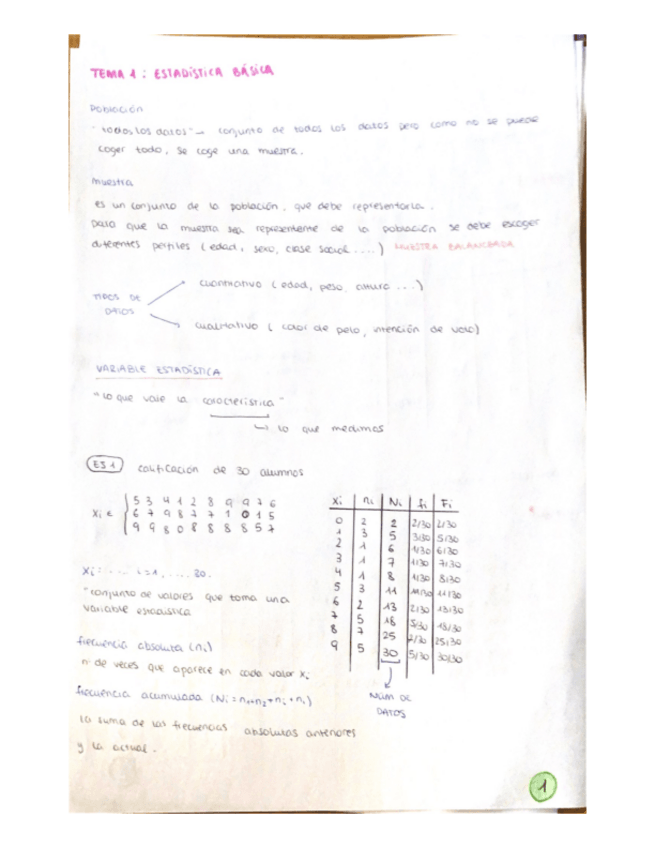 TEMA 1: ESTADÍSTICA BÁSICA
Población
"todos los datos" → conjunto de todos los datos pero como no se puede
coger todo, se coge una muestra.
muestra
es un conjunto de la población, que debe representarla.
para que la muestra sea representante de la población se debe escoger
diferentes perfiles (edad, sexo, clase social ....) MUESTRA BALANCEADA
TIPOS DE
DATOS
cuantitativo (edad, peso, altura ...)
cualitativo (color de pelo, intención de voto)
VARIABLE ESTADÍSTICA
"lo que vale la característica"
↳ lo que medimos
EJ 1 calificación de 30 alumnos
Xi ∈
5 3 4 1 2 8 9 9 7 6
6 7 9 8 7 7 1 0 1 5
9 9 8 0 8 8 8 8 5 7
Xi ni Ni fi Fi
0 2 2 2/30 2/30
1 3 5 3/30 5/30
2 1 6 1/30 6/30
3 1 7 1/30 7/30
4 1 8 1/30 8/30
5 3 11 11/30
6 2 13 2/30 13/30
7 5 18 5/30 18/30
8 7 25 7/30 25/30
9 5 30 5/30 30/30
NÚM DE
DATOS
Xi = .... i=1, .... 30.
"conjunto de valores que toma una
variable estadística
frecuencia absoluta (ni)
nº de veces que aparece en cada valor Xi
frecuencia acumulada (Ni = n1+n2+ni+ni)
la suma de las frecuencias absolutas anteriores
y la actual.
1